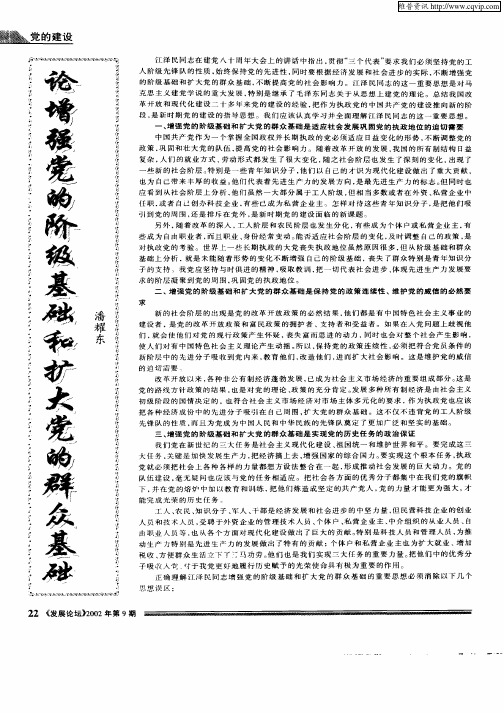 维普资讯 http://www.cqvip.com
党的建设
论增强党的阶级基础和扩大党的群众基础
潘耀东
江泽民同志在建党八十周年大会上的讲话中指出,贯彻“三个代表”要求我们必须坚持党的工
人阶级先锋队的性质,始终保持党的先进性,同时要根据经济发展和社会进步的实际,不断增强党
的阶级基础和扩大党的群众基础,不断提高党的社会影响力。江泽民同志的这一重要思想是对马
克思主义建党学说的重大发展,特别是继承了毛泽东关于从思想上建党的理论。总结我国改
革开放和现代化建设二十多年来党的建设的经验,把作为执政党的中国共产党的建设推向新的阶
段,是新时期党的建设的指导思想。我们应该认真学习并全面理解江泽民同志的这一重要思想。
一、增强党的阶级基础和扩大党的群众基础是适应社会发展巩固党的执政地位的迫切需要
中国共产党作为一个掌握全国政权并长期执政的党必须适应日益变化的形势,不断调整党的
政策,巩固和壮大党的队伍,提高党的社会影响力。随着改革开放的发展,我国的所有制结构日益
复杂,人们的就业方式,劳动形式都发生了很大变化,随之社会阶层也发生了深刻的变化,出现了
一些新的社会阶层,特别是一些青年知识分子,他们以自己的才识为现代化建设做出了重大贡献,
也为自己带来丰厚的收益,他们代表着先进生产力的发展方向,是最先进生产力的标志,但同时也
应看到从社会阶层上分析,他们虽然一大部分属于工人阶级,但相当多数或者在外资,私营企业中
任职,或者自己创办科技企业,有些已成为私营企业主。怎样对待这些青年知识分子,是把他们吸
引到党的周围,还是排斥在党外,是新时期党的建设面临的新课题。
另外,随着改革的深入,工人阶层和农民阶层也发生分化,有些成为个体户或私营企业主,有
些成为自由职业者,而且职业,身份经常变动,能否适应社会阶层的变化,及时调整自己的政策,是
对执政党的考验。世界上一些长期执政的大党丧失执政地位虽然原因很多,但从阶级基础和群众
基础上分析,就是未能随着形势的变化不断增强自己的阶级基础,丧失了群众特别是青年知识分
子的支持。我党应坚持与时俱进的精神,吸取教训,把一切代表社会进步、体现先进生产力发展要
求的阶层凝聚到党的周围,巩固党的执政地位。
二、增强党的阶级基础和扩大党的群众基础是保持党的政策连续性、维护党的威信的必然要
求
新的社会阶层的出现是党的改革开放政策的必然结果,他们都是有中国特色社会主义事业的
建设者,是党的改革开放政策和富民政策的拥护者、支持者和受益者。如果在入党问题上歧视他
们,就会使他们对党的现行政策产生怀疑,丧失富而思进的动力,同时也会对整个社会产生影响,
使人们对有中国特色社会主义理论产生动摇,所以,保持党的政策连续性,必须把符合党员条件的
新阶层中的先进分子吸收到党内来,教育他们,改造他们,进而扩大社会影响。这是维护党的威信
的迫切需要
改革开放以来,各种非公有制经济蓬勃发展,已成为社会主义市场经济的重要组成部分,这是
党的路线方针政策的结果,也是对党的理论、政策的充分肯定。发展多种所有制经济是由社会主义
初级阶段的国情决定的、也符合社会主义市场经济对市场主体多元化的要求,作为执政党也应该
把各种经济成份中的先进分子吸引在自己周围,扩大党的群众基础。这不仅不违背党的工人阶级
先锋队的性质,而且为党成为中国人民和中华民族的先锋队奠定了更加广泛和坚实的基础。
三、增强党的阶级基础和扩大党的群众基础是实现党的历史任务的政治保证
我们党在新世纪的三大任务是社会主义现代化建设、祖国统一和维护世界和平。要完成这三
大任务,关键是加快发展生产力,把经济搞上去,增强国家的综合国力,要实现这个根本任务,执政
党就必须把社会上各种各样的力量都想方设法整合在一起,形成推动社会发展的巨大动力。党的
队伍建设,毫无疑问也应该与党的任务相适应。把社会各方面的优秀分子都集中在我们党的旗帜
下,并在党的熔炉中加以教育和训练,把他们炼造成坚定的共产党人,党的力量才能更为强大,才
能完成光荣的历史任务。
工人、农民、知识分子、军人、干部是经济发展和社会进步的中坚力量,但民营科技企业的创业
人员和技术人员,受聘于外资企业的管理技术人员、个体户、私营企业主、中介组织的从业人员、自
由职业人员等,也从各个方面对现代化建设做出了巨大的贡献,特别是科技人员和管理人员,为推
动生产力特别是先进生产力的发展做出了特有的贡献;个体户和私营企业主也为扩大就业、增加
税收,方便群众生活立下了汗马功劳,他们也是我们实现三大任务的重要力量,把他们中的优秀分
子吸收入党,对于我党更好地履行历史赋予的光荣使命具有极为重要的作用。
正确理解江泽民同志增强党的阶级基础和扩大党的群众基础的重要思想必须消除以下几个
思想误区:
22 《发展论坛》2002年第9期